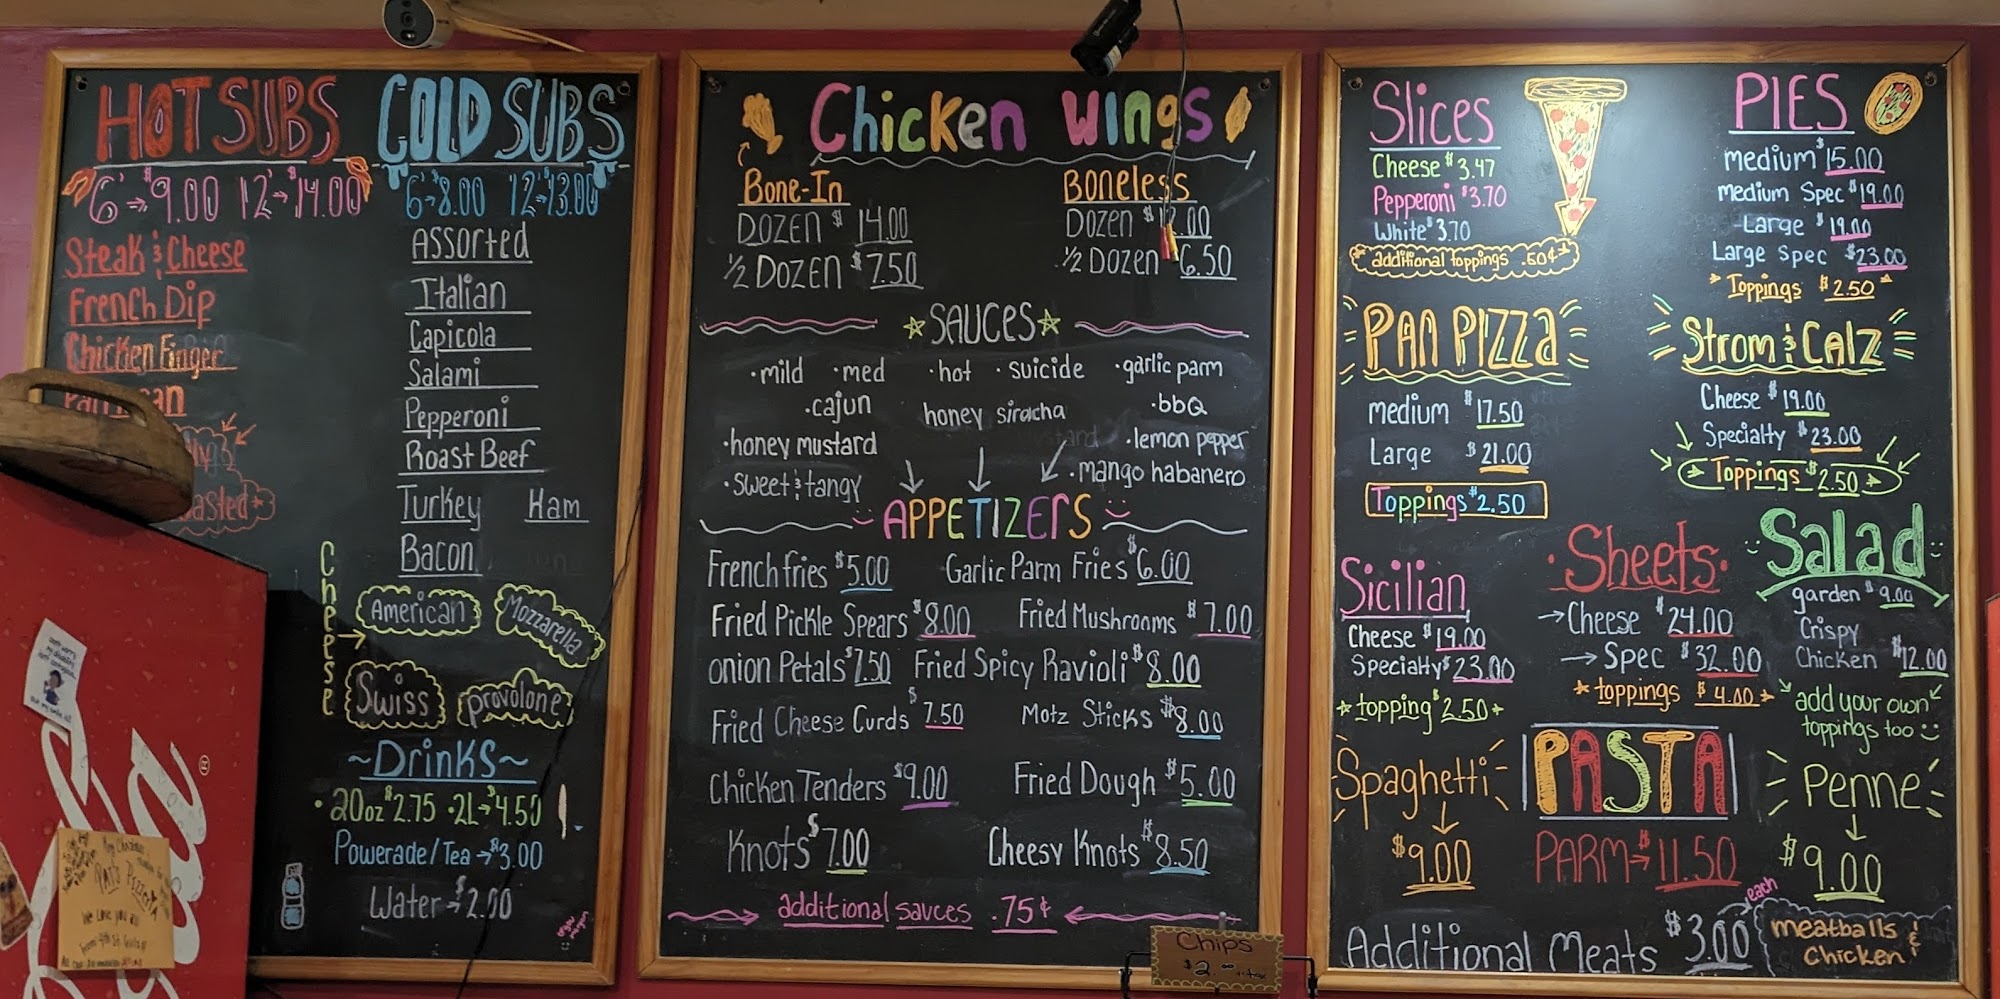 HOT SUBS
6" → $9.00 12" → $14.00
Steak & Cheese
French Dip
Chicken Finger
COLD SUBS
6" → 8.00 12" → 13.00
Assorted
Italian
Capicola
Salami
Pepperoni
Roast Beef
Turkey Ham
Bacon
Cheese →
American Mozzarella
Swiss provolone
~Drinks~
• 20oz $2.75 • 2L → $4.50
Powerade/Tea → $3.00
Water → $2.00
Chicken Wings
Bone-In
DOZEN $14.00
1/2 DOZEN $7.50
Boneless
Dozen
1/2 Dozen $6.50
☆ SAUCES ☆
• mild • med • hot • suicide • garlic parm
• cajun honey siracha • bbQ
• honey mustard • lemon pepper
• sweet & tangy • mango habanero
APPETIZERS
French fries $5.00 Garlic Parm Fries $6.00
Fried Pickle Spears $8.00 Fried Mushrooms $7.00
onion Petals $7.50 Fried Spicy Ravioli $8.00
Fried Cheese Curds $7.50 Motz Sticks $8.00
Chicken Tenders $9.00 Fried Dough $5.00
Knots $7.00 Cheesy Knots $8.50
additional sauces .75¢
Chips
$2.00 + tax
Slices
Cheese $3.47
Pepperoni $3.70
White $3.70
additional toppings .50¢
PIES
medium $15.00
medium Spec $19.00
Large $19.00
Large Spec $23.00
Toppings $2.50
PAN PIZZA
medium $17.50
Large $21.00
Toppings $2.50
Strom & CALZ
Cheese $19.00
Specialty $23.00
Toppings $2.50
Sicilian
Cheese $19.00
Specialty $23.00
topping $2.50
Sheets
→ Cheese $24.00
→ Spec $32.00
toppings $4.00
Salad
garden $9.00
Crispy
Chicken $12.00
add your own
toppings too
PASTA
Spaghetti
$9.00
PARM → $11.50
Penne
$9.00
Additional Meats $3.00 each
meatballs &
Chicken